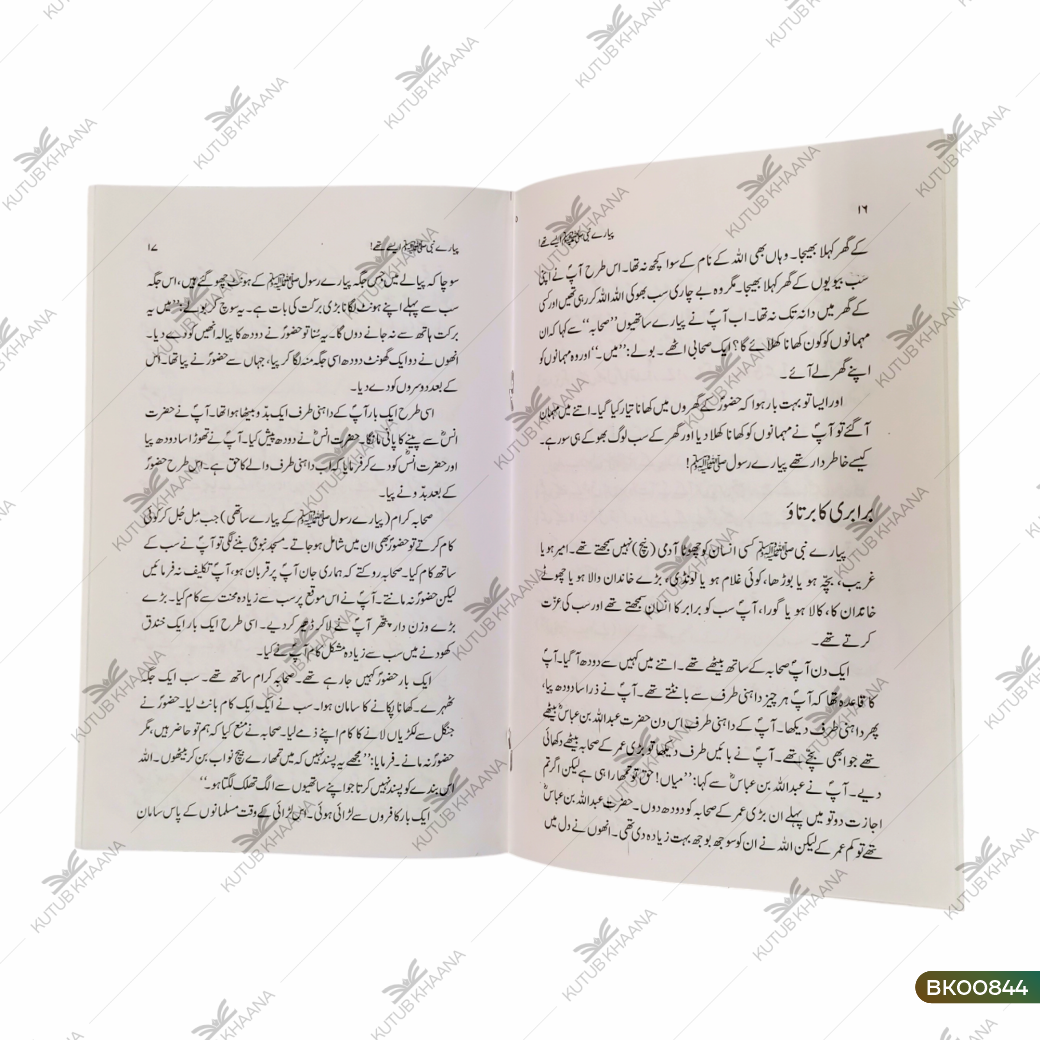 ۱۶
پیارے نبی ﷺ ایسے تھے!
کے گھر کہلا بھیجا۔ وہاں بھی اللہ کے نام کے سوا کچھ نہ تھا۔ اس طرح آپؐ نے اپنی
سب بیویوں کے گھر کہلا بھیجا۔ مگر وہ بے چاری سب بھوکی اللہ اللہ کر رہی تھیں اور کسی
کے گھر میں دانہ تک نہ تھا۔ اب آپؐ نے پیارے ساتھیوں ”صحابہ“ سے کہا کہ ان
مہمانوں کو کون کھانا کھلائے گا؟ ایک صحابی اٹھے۔ بولے: ”میں۔“ اور وہ مہمانوں کو
اپنے گھر لے آئے۔
اور ایسا تو بہت بار ہوا کہ حضورؐ کے گھروں میں کھانا تیار کیا گیا۔ اتنے میں مہمان
آ گئے تو آپؐ نے مہمانوں کو کھانا کھلا دیا اور گھر کے سب لوگ بھوکے ہی سو رہے۔
کیسے خاطر دار تھے پیارے رسول ﷺ!
برابری کا برتاؤ
پیارے نبی ﷺ کسی انسان کو چھوٹا آدمی (نیچ) نہیں سمجھتے تھے۔ امیر ہو یا
غریب، بچّے ہو یا بوڑھا، کوئی غلام ہو یا لونڈی، بڑے خاندان والا ہو یا چھوٹے
خاندان کا، کالا ہو یا گورا، آپؐ سب کو برابر کا انسان سمجھتے تھے اور سب کی عزّت
کرتے تھے۔
ایک دن آپؐ صحابہ کے ساتھ بیٹھے تھے۔ اتنے میں کہیں سے دودھ آ گیا۔ آپؐ
کا قاعدہ تھا کہ آپؐ ہر چیز داہنی طرف سے بانٹتے تھے۔ آپؐ نے ذرا سا دودھ پیا،
پھر داہنی طرف دیکھا۔ آپؐ کے داہنی طرف اس دن حضرت عبداللہ بن عباسؓ بیٹھے
تھے جو ابھی بچّے تھے۔ آپؐ نے بائیں طرف دیکھا تو بڑی عمر کے صحابہ بیٹھے دکھائی
دیے۔ آپؐ نے عبداللہ بن عباسؓ سے کہا: ”میاں! حق تو تمھارا ہی ہے لیکن اگر تم
اجازت دو تو میں پہلے ان بڑی عمر کے صحابہ کو دودھ دوں۔ حضرت عبداللہ بن عباسؓ
تھے تو کم عمر کے لیکن اللہ نے ان کو سوجھ بوجھ بہت زیادہ دی تھی۔ انھوں نے دل میں
پیارے نبی ﷺ ایسے تھے!
۱۷
سوچا کہ پیالے میں جس جگہ پیارے رسول ﷺ کے ہونٹ چھو گئے ہیں، اس جگہ
سب سے پہلے اپنے ہونٹ لگانا بڑی برکت کی بات ہے۔ یہ سوچ کر بولے: ”میں یہ
برکت ہاتھ سے نہ جانے دوں گا۔ یہ سُنا تو حضورؐ نے دودھ کا پیالہ انھیں کو دے دیا۔
انھوں نے دو ایک گھونٹ دودھ اسی جگہ منہ لگا کر پیا، جہاں سے حضورؐ نے پیا تھا۔ اس
کے بعد دوسروں کو دے دیا۔
اسی طرح ایک بار آپؐ کے داہنی طرف ایک بدّو بیٹھا ہوا تھا۔ آپؐ نے حضرت
انسؓ سے پینے کا پانی مانگا۔ حضرت انسؓ نے دودھ پیش کیا۔ آپؐ نے تھوڑا سا دودھ پیا
اور حضرت انسؓ کو دے کر فرمایا کہ اب داہنی طرف والے کا حق ہے۔ اس طرح حضورؐ
کے بعد بدّو نے پیا۔
صحابہ کرام (پیارے رسول ﷺ کے پیارے ساتھی) جب مِل جُل کر کوئی
کام کرتے تو حضورؐ بھی ان میں شامل ہو جاتے۔ مسجد نبویؐ بننے لگی تو آپؐ نے سب کے
ساتھ کام کیا۔ صحابہ روکتے کہ ہماری جان آپؐ پر قربان ہو، آپؐ تکلیف نہ فرمائیں
لیکن حضورؐ نہ مانتے۔ آپؐ نے اس موقع پر سب سے زیادہ محنت سے کام کیا۔ بڑے
بڑے وزن دار پتھر آپؐ نے لا کر ڈھیر کر دیے۔ اسی طرح ایک بار ایک خندق
کھودنے میں سب سے زیادہ مشکل کام آپؐ نے کیا۔
ایک بار حضورؐ کہیں جا رہے تھے۔ صحابہ کرام ساتھ تھے۔ سب ایک جگہ
ٹھہرے۔ کھانا پکانے کا سامان ہوا۔ سب نے ایک ایک کام بانٹ لیا۔ حضورؐ نے
جنگل سے لکڑیاں لانے کا کام اپنے ذمے لیا۔ صحابہ نے منع کیا کہ ہم تو حاضر ہیں، مگر
حضورؐ نہ مانے۔ فرمایا: ”مجھے یہ پسند نہیں کہ میں تمھارے بیچ نواب بن کر بیٹھوں۔ اللہ
اس بندے کو پسند نہیں کرتا جو اپنے ساتھیوں سے الگ تھلگ لگتا ہو۔“
ایک بار کافروں سے لڑائی ہوئی۔ اس لڑائی کے وقت مسلمانوں کے پاس سامان
KUTUB KHAANA
BK00844